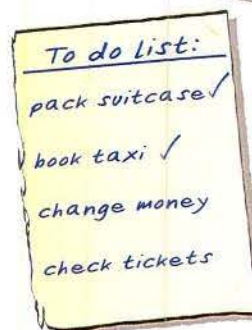 To do list:
pack suitcase✓
book taxi ✓
change money
check tickets